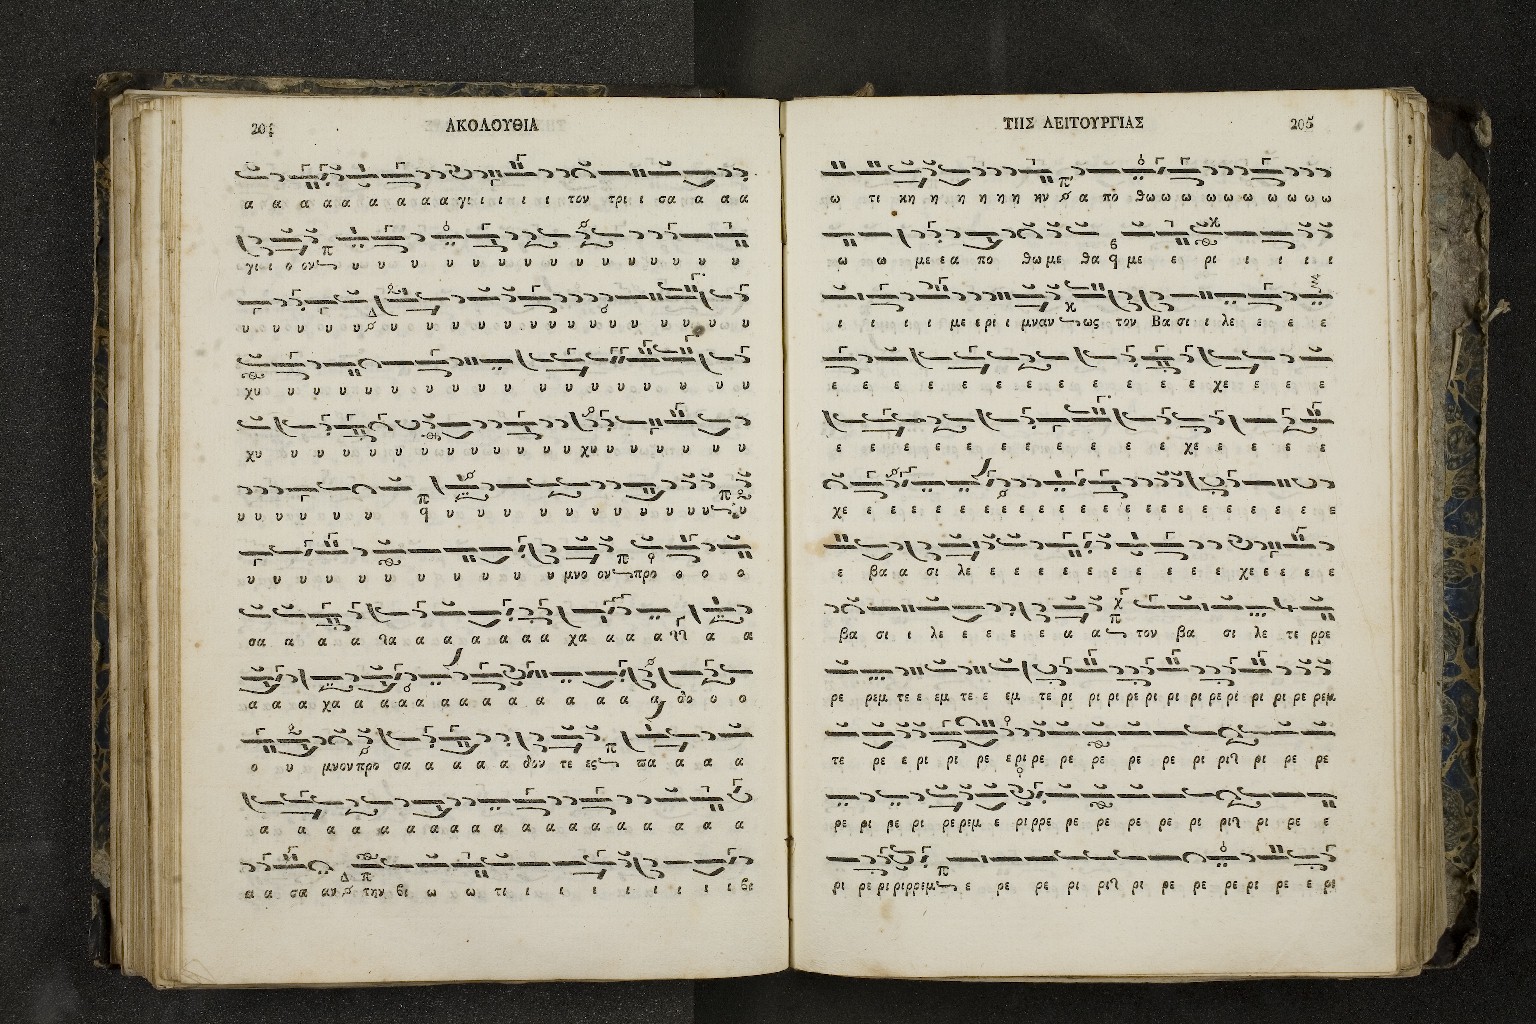 204 ΑΚΟΛΟΥΘΙΑ
α α α α α α α α α γι ι ι ι ι τον τρι ι σα α α α
γι ι ο ον υ υ υ υ υ υ υ υ υ υ υ υ υ υ
υ υ υ υ υ υ υ υ υ υ υ υ υ υ υ υ υ υ υ υ
χυ υ υ υ υ υ υ υ υ υ υ υ υ υ υ υ υ
χυ υ υ υ υ υ υ υ υ υ υ υ χυ υ υ υ υ υ υ
υ υ υ υ υ υ υ υ υ υ υ υ υ υ υ υ υ υ
υ υ υ υ υ υ υ υ υ υ υ μνο ον προ ο ο ο
σα α α α α α α α α α α χα α α α α α
α α α χα α α α α α α α α α α α α α α δο ο ο
ο υ μνον προ σα α α α α α δον τε ες πα α α α
α α α α α α α α α α α α α α α α α α
α α σα αν την θι ω ω τι ι ι ι ι ι ι ι ι θι
ΤΗΣ ΛΕΙΤΟΥΡΓΙΑΣ 205
ω τι κη η η η η η κν α πο θω ω ω ω ω ω ω ω ω ω
ω ω με ε α πο θω με θα με ε ρι ι ι ι ι
ι ι ι ι με ε ρι ι μναν ως τον Βα σι ι λε ε ε ε
ε ε ε ε ε ε ε ε ε ε ε ε χε ε ε ε
ε ε ε ε ε ε ε ε ε ε ε χε ε ε ε ε
χε ε ε ε ε ε ε ε ε ε ε ε ε ε ε ε ε ε ε ε ε ε
ε βα α σι λε ε ε ε ε ε ε ε ε ε ε χε ε ε ε ε
βα σι ι λε ε ε ε ε α α τον βα σι λε τε ρρε
ρε ρεμ τε ε εμ τε ε εμ τε ρι ρι ρι ρε ρι ρι ρι ρε ρι ρι ρι ρε ρεμ
τε ρε ε ρι ρι ρε ε ρι ρε ρε ρε ρε ρε ρι ρι ρι ρε ρε
ρε ρι ρε ρι ρε ρεμ ε ρι ρρε ρε ρε ρε ρε ρι ρι ρι ρε ε
ρι ρε ρι ρι ρρεμ ε ρε ρε ρι ρι ρι ρε ρε ρε ρι ρε ε ρι